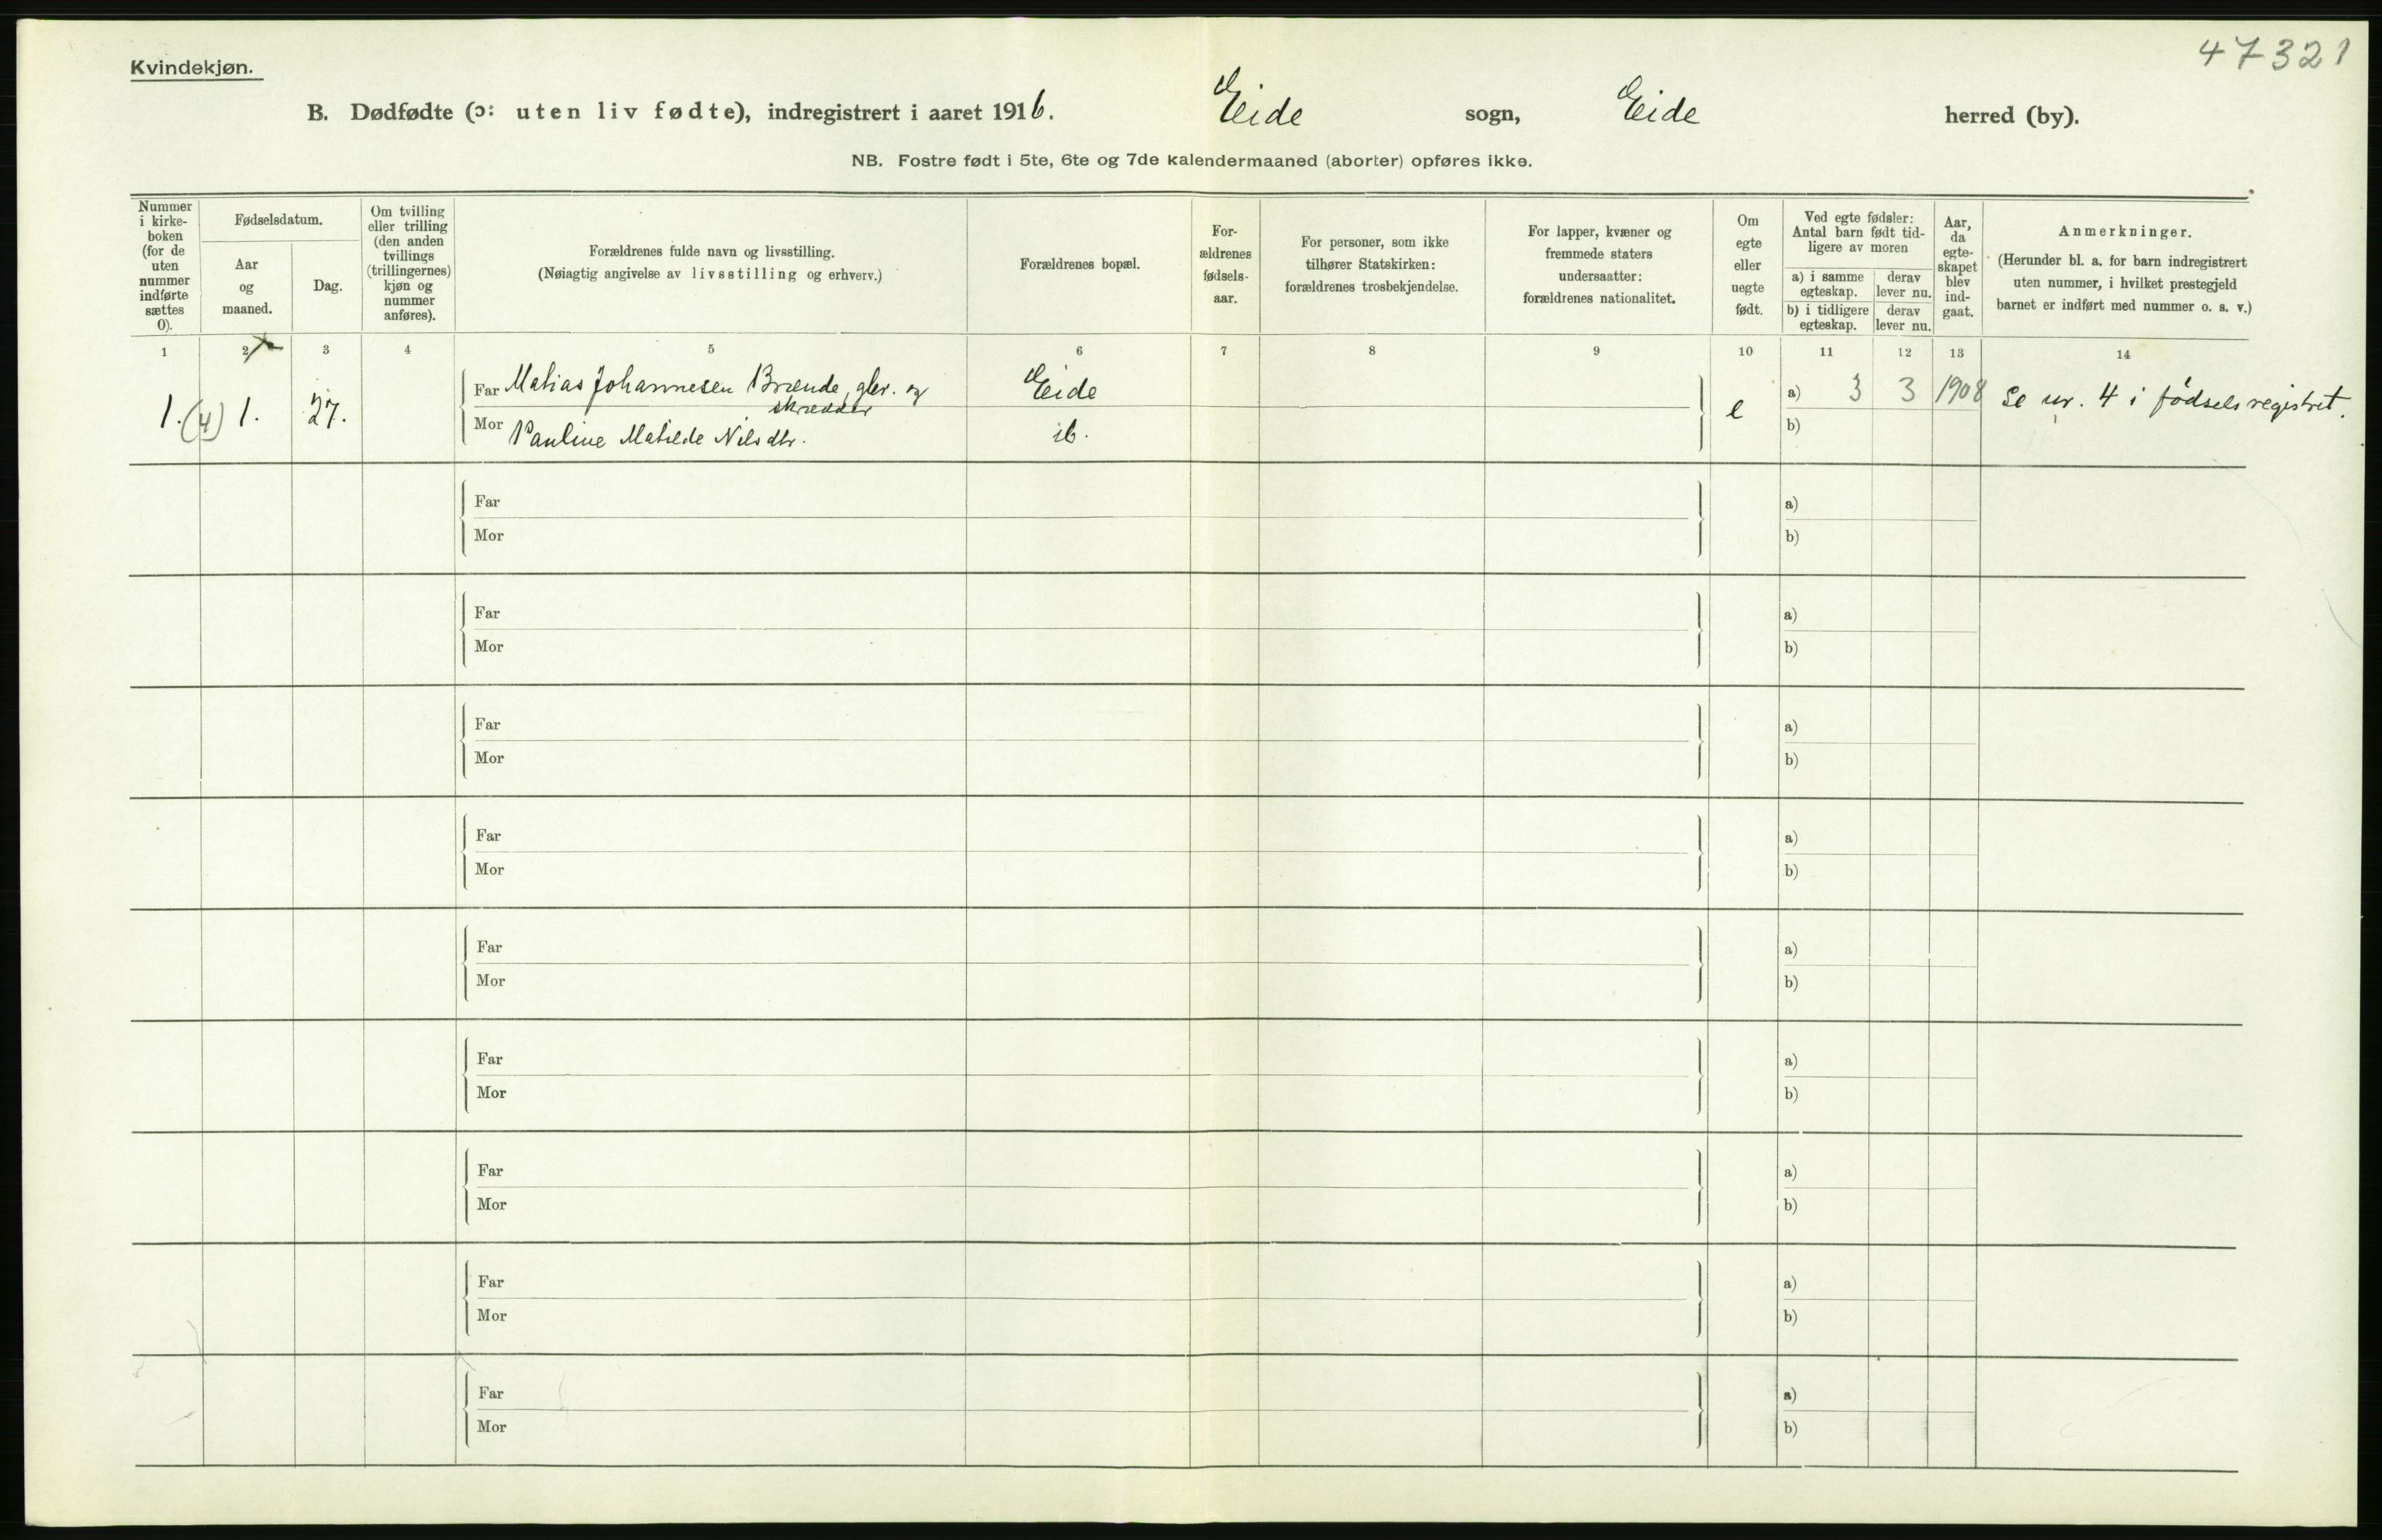 47321
Kvindekjøn.
B. Dødfødte (ɔ: uten liv fødte), indregistrert i aaret 1916. Eide sogn, Eide herred (by).
NB. Fostre født i 5te, 6te og 7de kalendermaaned (aborter) opføres ikke.
Nummer
i kirke-
boken
(for de
uten
nummer
indførte
sættes
0).
Fødselsdatum.
Aar
og
maaned.
Dag.
Om tvilling
eller trilling
(den anden
tvillings
(trillingernes)
kjøn og
nummer
anføres).
Forældrenes fulde navn og livsstilling.
(Nøiagtig angivelse av livsstilling og erhverv.)
Forældrenes bopæl.
For-
ældrenes
fødsels-
aar.
For personer, som ikke
tilhører Statskirken:
forældrenes trosbekjendelse.
For lapper, kvæner og
fremmede staters
undersaatter:
forældrenes nationalitet.
Om
egte
eller
uegte
født.
Ved egte fødsler:
Antal barn født tid-
ligere av moren
a) i samme
egteskap.
derav
lever nu.
b) i tidligere
egteskap.
derav
lever nu.
Aar,
da
egte-
skapet
blev
ind-
gaat.
Anmerkninger.
(Herunder bl. a. for barn indregistrert
uten nummer, i hvilket prestegjeld
barnet er indført med nummer o. s. v.)
1 2 3 4 5 6 7 8 9 10 11 12 13 14
Far Matias Johannesen Brænde, gbr. og Eide a) 3 3 1908
skrædder
1. (4) 1. 27. e Se nr. 4 i fødselsregistret.
Mor Pauline Matilde Nilsdtr. ib. b)
Far a)
Mor b)
Far a)
Mor b)
Far a)
Mor b)
Far a)
Mor b)
Far a)
Mor b)
Far a)
Mor b)
Far a)
Mor b)
Far a)
Mor b)
Far a)
Mor b)